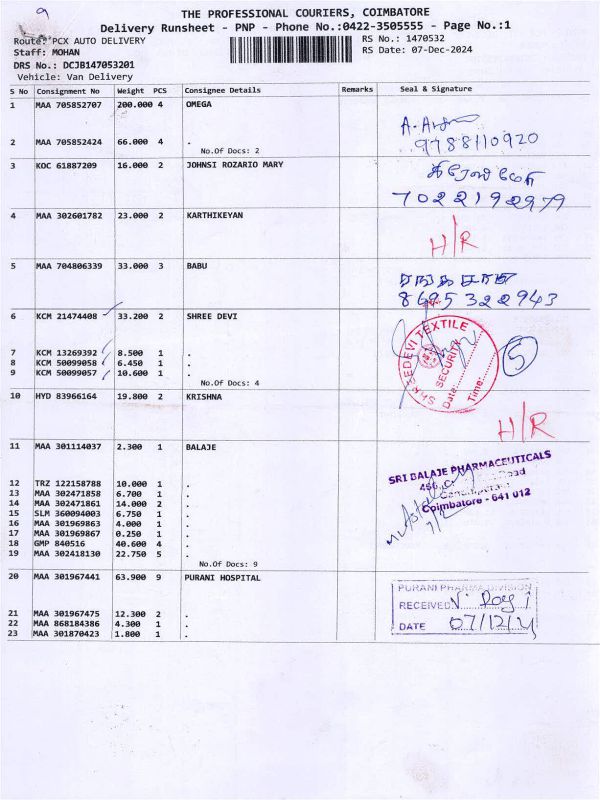 9
THE PROFESSIONAL COURIERS, COIMBATORE
Delivery Runsheet - PNP - Phone No.:0422-3505555 - Page No.:1
Route: PCX AUTO DELIVERY
RS No.: 1470532
Staff: MOHAN
RS Date: 07-Dec-2024
DRS No.: DCJB147053201
Vehicle: Van Delivery
S No Consignment No Weight PCS Consignee Details Remarks Seal & Signature
1 MAA 705852707 200.000 4 OMEGA
2 MAA 705852424 66.000 4 .
9788110920
No.Of Docs: 2
3 KOC 61887209 16.000 2 JOHNSI ROZARIO MARY
7022192979
4 MAA 302601782 23.000 2 KARTHIKEYAN
H/R
5 MAA 704806339 33.000 3 BABU
8695322943
6 KCM 21474408 33.200 2 SHREE DEVI
SHREEDEVI TEXTILE
SECURITY
Date:
Time:
5
7 KCM 13269392 8.500 1 .
8 KCM 50099058 6.450 1 .
9 KCM 50099057 10.600 1 .
No.Of Docs: 4
10 HYD 83966164 19.800 2 KRISHNA
H/R
11 MAA 301114037 2.300 1 BALAJE
SRI BALAJE PHARMACEUTICALS
Road
Coimbatore - 641 012
12 TRZ 122158788 10.000 1 .
13 MAA 302471858 6.700 1 .
14 MAA 302471861 14.000 2 .
15 SLM 360094003 6.750 1 .
16 MAA 301969863 4.000 1 .
17 MAA 301969867 0.250 1 .
18 GMP 840516 40.600 4 .
19 MAA 302418130 22.750 5 .
No.Of Docs: 9
20 MAA 301967441 63.900 9 PURANI HOSPITAL
PURANI PHARMA DIVISION
RECEIVED
DATE 07/12/24
21 MAA 301967475 12.300 2 .
22 MAA 868184386 4.300 1 .
23 MAA 301870423 1.800 1 .